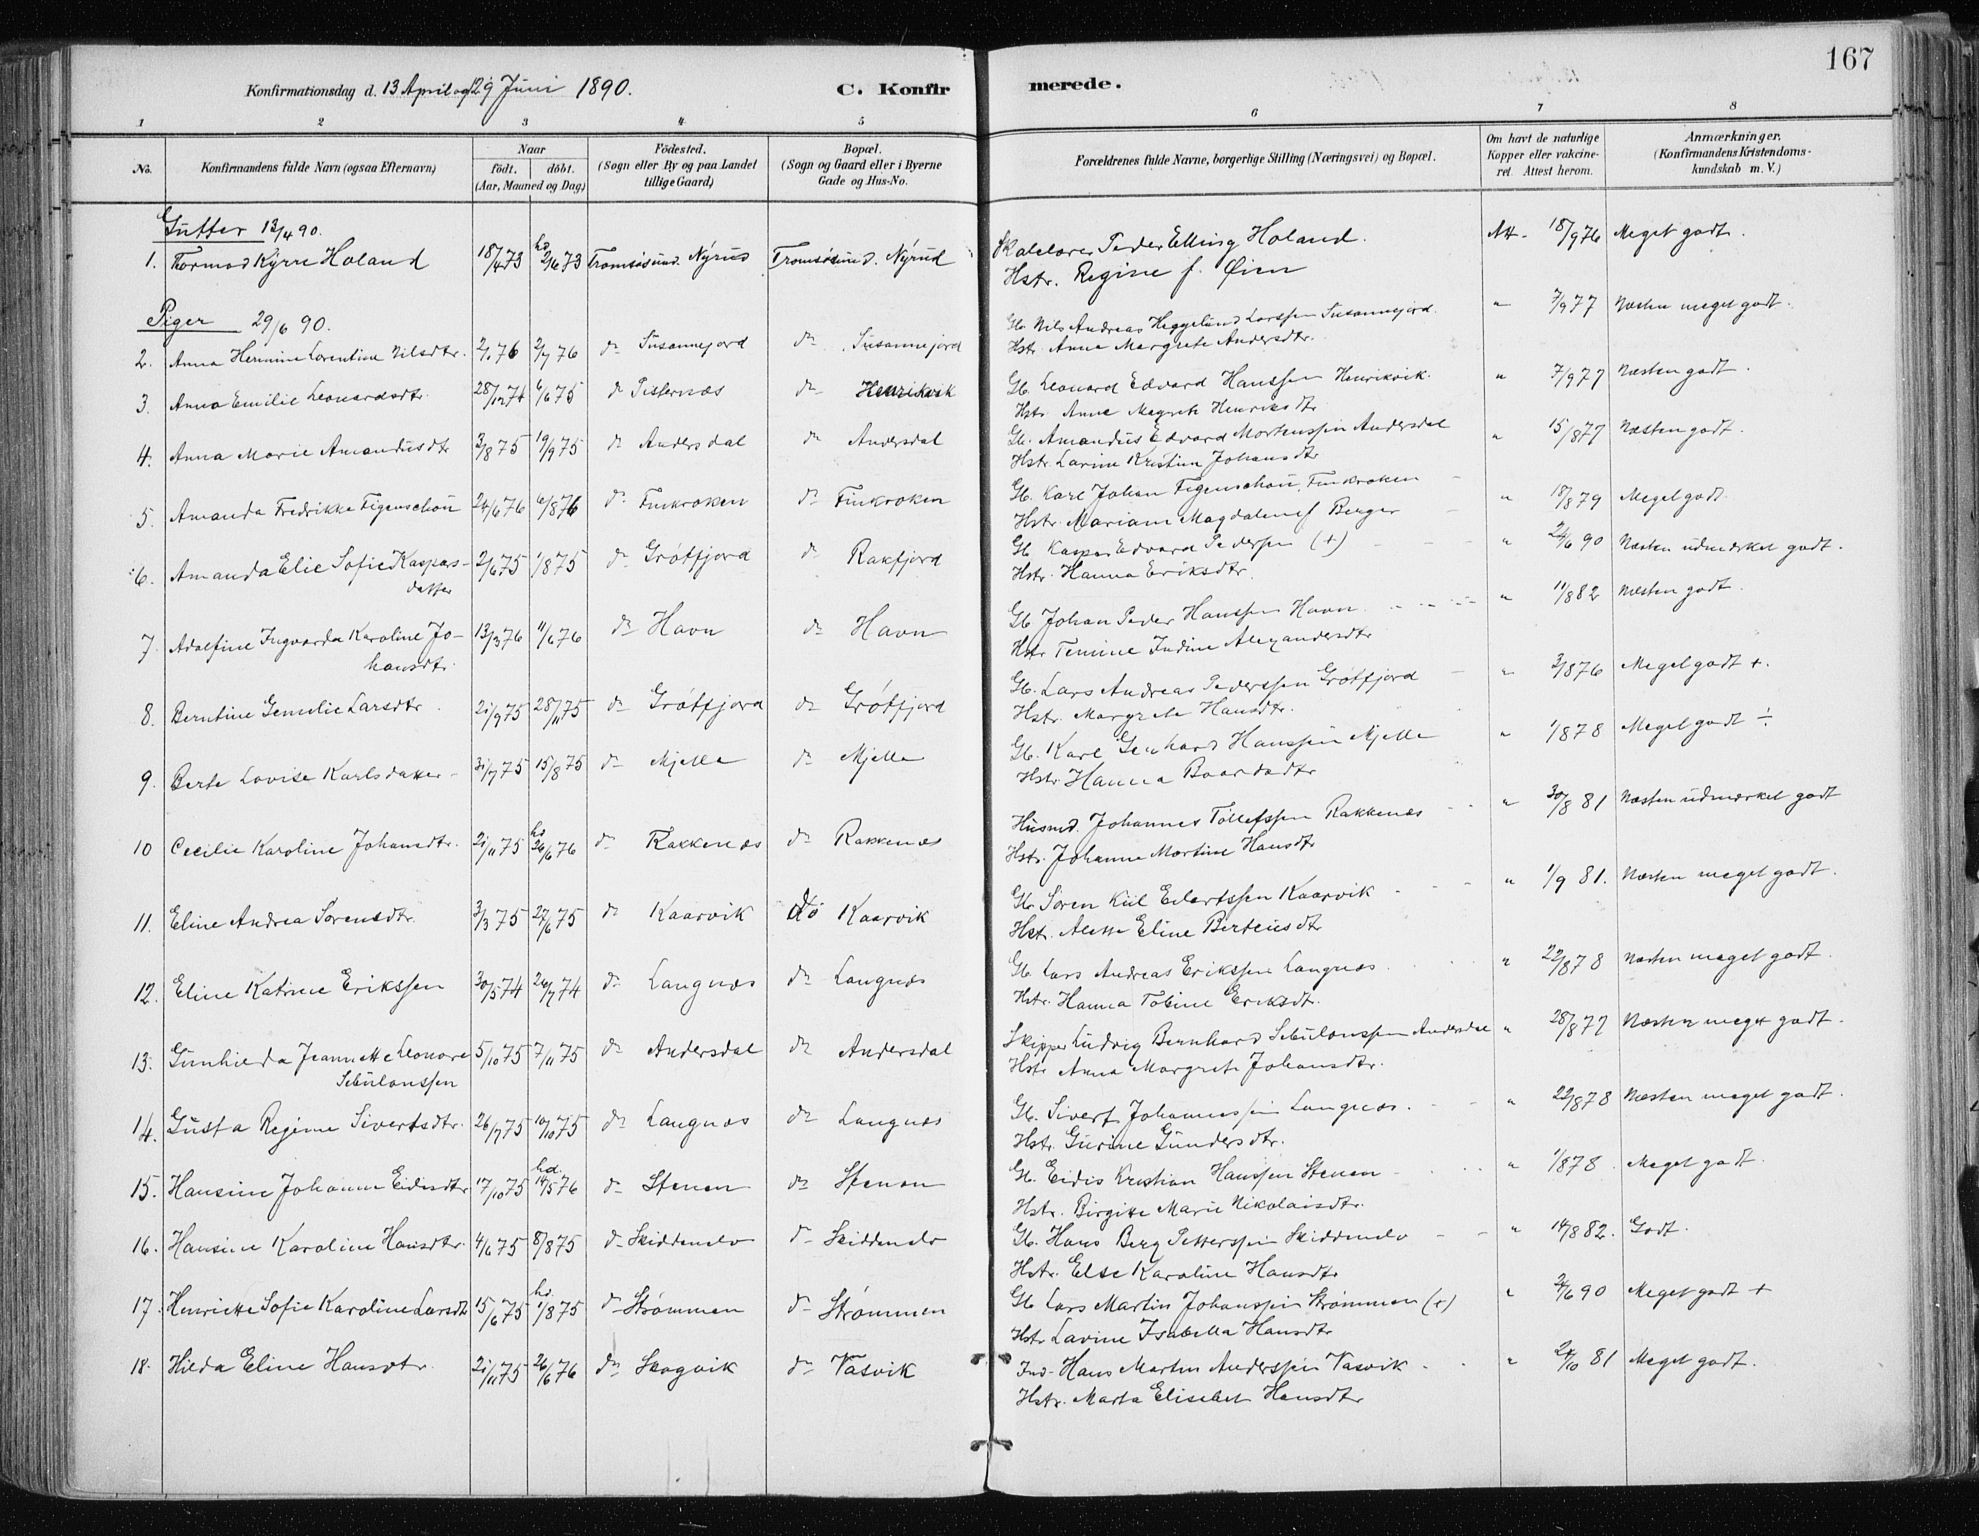 167
Konfirmationsdag d. 13 April og 29 Juni 1890.
C. Konfirmerede.
1 2 3 4 5 6 7 8
No.
Konfirmandens fulde Navn (ogsaa Efternavn)
Naar
født. døbt.
(Aar, Maaned og Dag)
Fødested.
(Sogn eller By og paa Landet
tillige Gaard)
Bopæl.
(Sogn og Gaard eller i Byerne
Gade og Hus-No.
Forældrenes fulde Navne, borgerlige Stilling (Næringsvei) og Bopæl.
Om havt de naturlige
Kopper eller vakcine-
ret. Attest herom.
Anmærkninger.
(Konfirmandens Kristendoms-
kundskab m. V.)
Gutter 13/4 90.
1. Thormod Kyrre Holand 18/4 73 hd 2/6 73 Tromsøsund. Nyrud Tromsøsund. Nyrud Skolelærer Peder Elling Holand. Att. 18/9 76 Meget godt.
Hstr. Regine f. Øien
Piger 29/6 90.
2. Anna Hermine Lorentine Nilsdtr. 2/1 76 2/7 76 do Susannejord do Susannejord Gb. Nils Andreas Heggelund Larssen Susannejord. " 7/9 77 Næsten meget godt.
Hstr. Anna Margrete Andersdtr.
3. Anna Emilie Leonardsdtr. 28/12 74 6/6 75 do Pisternæs do Henrikvik Gb. Leonard Edvard Hanssen Henrikvik. " 7/9 77 Næsten godt.
Hstr. Anna Magrete Henriksdtr
4. Anna Marie Amandusdtr 3/8 75 19/9 75 do Andersdal do Andersdal Gb. Amandus Edvard Mortenssen Andersdal " 15/8 77 Næsten godt.
Hstr. Larine Kristine Johansdtr
5. Amanda Fredrikke Figenschou 24/6 76 6/8 76 do Finkroken do Finkroken Gb. Karl Johan Figenschou, Finkroken " 18/8 79 Meget godt.
Hstr. Mariam Magdalene f Berger
6. Amanda Elie Sofie Kaspars- 2/6 75 1/8 75 do Grøtfjord do Rakfjord Gb Kaspar Edvard Pedersen (+) " 24/6 90 Næsten udmærket godt.
datter Hstr. Hanna Eriksdtr.
7. Adolfine Ingvarda Karoline Jo- 13/3 76 11/6 76 do Havn do Havn Gb Johan Peder Hanssen Havn. " 11/8 82 Næsten godt.
hansdtr. Hstr Temine Indine Alexandersdtr
8. Berntine Gemelie Larsdtr. 21/9 75 28/11 75 do Grøtfjord do Grøtfjord Gb. Lars Andreas Pederssen Grøtfjord " 3/8 76 Meget godt +.
Hstr. Margrete Hansdtr.
9. Berte Lovise Karlsdatter 31/7 75 15/8 75 do Mjelle do Mjelle Gb. Karl Genhard Hanssen Mjelle " 1/8 78 Meget godt ÷
Hstr Hanna Baardsdtr
10 Cecilie Karoline Johansdtr. 21/11 75 hd 26/6 76 do Rakkenæs do Rakkenæs Husmd. Johannes Tollefssen Rakkenæs " 30/8 81 Næsten udmærket godt
Hstr. Johanna Martine Hansdtr
11. Eline Andrea Sørensdtr. 3/3 75 27/6 75 do Kaarvik do Kaarvik Gb Søren Kiil Eilertssen Kaarvik " 1/9 81. Næsten meget godt.
Hstr. Aletta Eline Berteusdtr
12. Eline Katrine Erikssen 30/5 74 26/7 74 do Langnæs do Langnæs Gb. Lars Andreas Erikssen Langnæs. " 22/8 78 Næsten meget godt.
Hstr. Hanna Tobine Eriksdt.
13. Gunhilda Jeannette Leonore 5/10 75 7/11 75 do Andersdal do Andersdal Skipper Ludvig Bernhard Sebulonssen Andersdal " 28/8 77 Næsten meget godt.
Sebulonssen Hstr Anna Margrete Johansdtr.
14. Gusta Regine Sivertsdtr. 26/7 75 10/10 75 do Langnæs do Langnæs Gb. Sivert Johannessen Langnæs. " 22/8 78 Næsten meget godt.
Hstr. Gurine Gundersdtr.
15. Hansine Johanne Eidisdtr 17/10 75 hd. 14/5 76 do Stenen do Stenen Gb. Eidis Kristian Hanssen Stenen " 1/8 78. Meget godt
Hstr. Birgitte Marie Nikolaisdtr.
16. Hansine Karoline Hansdtr. 4/6 75 8/8 75 do Skiddenelv do Skiddenelv Gb. Hans Berg Petterssen Skiddenelv " 14/8 82. Godt.
Hstr. Else Karoline Hansdtr
17. Henriette Sofie Karoline Larsdtr 15/6 75 hd. 1/8 75 do Strømmen do Strømmen Gb Lars Martin Johanssen Strømmen (+) " 24/6 90 Meget godt +
Hstr Lavine Isabella Hansdtr
18. Hilda Eline Hansdtr. 21/11 75 26/6 76 do Skogvik do Vasvik Ind. Hans Martin Anderssen Vasvik " 24/10 81 Meget godt.
Hstr. Marta Elisabet Hansdtr